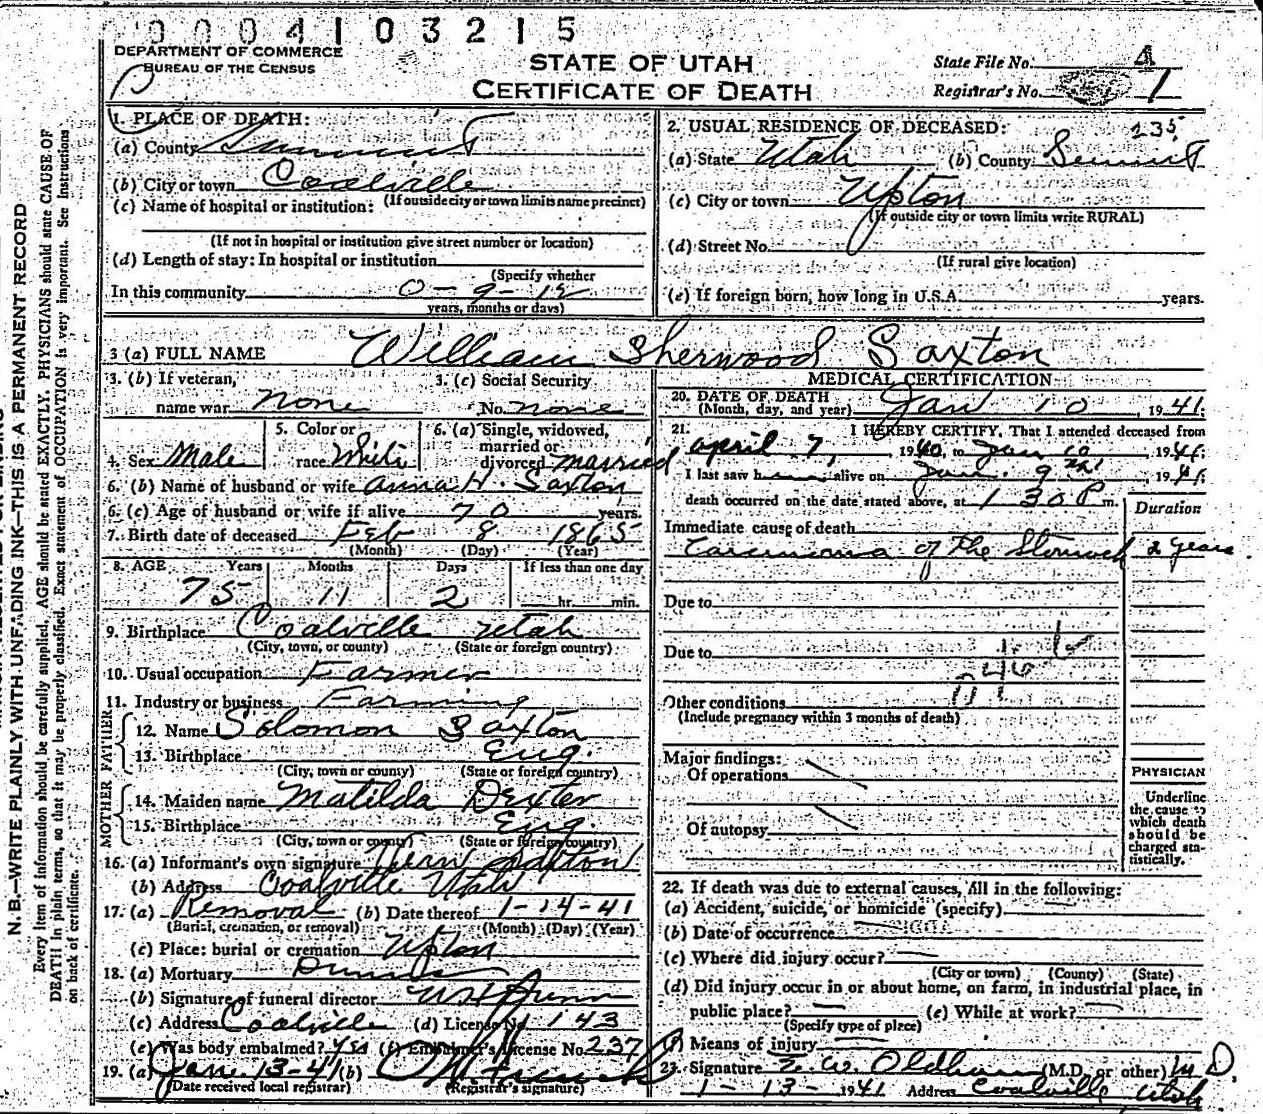 0004103215
DEPARTMENT OF COMMERCE
BUREAU OF THE CENSUS
STATE OF UTAH
CERTIFICATE OF DEATH
State File No. 4
Registrar's No. 1
N. B.—WRITE PLAINLY WITH UNFADING INK—THIS IS A PERMANENT RECORD
Every item of information should be carefully supplied. AGE should be stated EXACTLY. PHYSICIANS should state CAUSE OF
DEATH in plain terms, so that it may be properly classified. Exact statement of OCCUPATION is very important. See Instructions
on back of certificate.
1. PLACE OF DEATH:
(a) County Summit
(b) City or town Coalville
(If outside city or town limits name precinct)
(c) Name of hospital or institution:
(If not in hospital or institution give street number or location)
(d) Length of stay: In hospital or institution
(Specify whether
In this community 0-9-12
years, months or days)
2. USUAL RESIDENCE OF DECEASED: 235
(a) State Utah (b) County Summit
(c) City or town Upton
(If outside city or town limits write RURAL)
(d) Street No.
(If rural give location)
(e) If foreign born, how long in U.S.A. years.
3 (a) FULL NAME William Sherwood Saxton
3. (b) If veteran, name war none
3. (c) Social Security No. none
4. Sex Male
5. Color or race White
6. (a) Single, widowed, married or divorced married
6. (b) Name of husband or wife Anna H. Saxton
6. (c) Age of husband or wife if alive 70 years.
7. Birth date of deceased Feb 8 1865
(Month) (Day) (Year)
8. AGE Years Months Days If less than one day
75 11 2 hr. min.
9. Birthplace Coalville Utah
(City, town, or county) (State or foreign country)
10. Usual occupation Farmer
11. Industry or business Farming
FATHER
12. Name Solomon Saxton
13. Birthplace Eng.
(City, town or county) (State or foreign country)
MOTHER
14. Maiden name Matilda Dexter
15. Birthplace Eng.
(City, town or county) (State or foreign country)
16. (a) Informant's own signature Saxton
(b) Address Coalville Utah
17. (a) Removal (b) Date thereof 1-14-41
(Burial, cremation, or removal) (Month) (Day) (Year)
(c) Place: burial or cremation Upton
18. (a) Mortuary
(b) Signature of funeral director
(c) Address Coalville (d) License No. 143
(e) Was body embalmed? yes (f) Embalmer's License No. 237
19. (a) Jan. 13-41 (b)
(Date received local registrar) (Registrar's signature)
MEDICAL CERTIFICATION
20. DATE OF DEATH
(Month, day, and year) Jan 10, 1941
21. I HEREBY CERTIFY, That I attended deceased from
april 7, 1940, to Jan 10 1941
I last saw h alive on Jan. 9 1941
death occurred on the date stated above, at 1 30 P m.
Duration
Immediate cause of death
Carcinoma of the Stomach 2 years
Due to
Due to
46 b
Other conditions
(Include pregnancy within 3 months of death)
Major findings:
Of operations
Of autopsy
PHYSICIAN
Underline the cause to which death should be charged statistically.
22. If death was due to external causes, fill in the following:
(a) Accident, suicide, or homicide (specify)
(b) Date of occurrence
(c) Where did injury occur?
(City or town) (County) (State)
(d) Did injury occur in or about home, on farm, in industrial place, in
public place? (e) While at work?
(Specify type of place)
(f) Means of injury
23. Signature E. W. Oldham (M.D. or other) M D.
1-13-1941 Address Coalville Utah